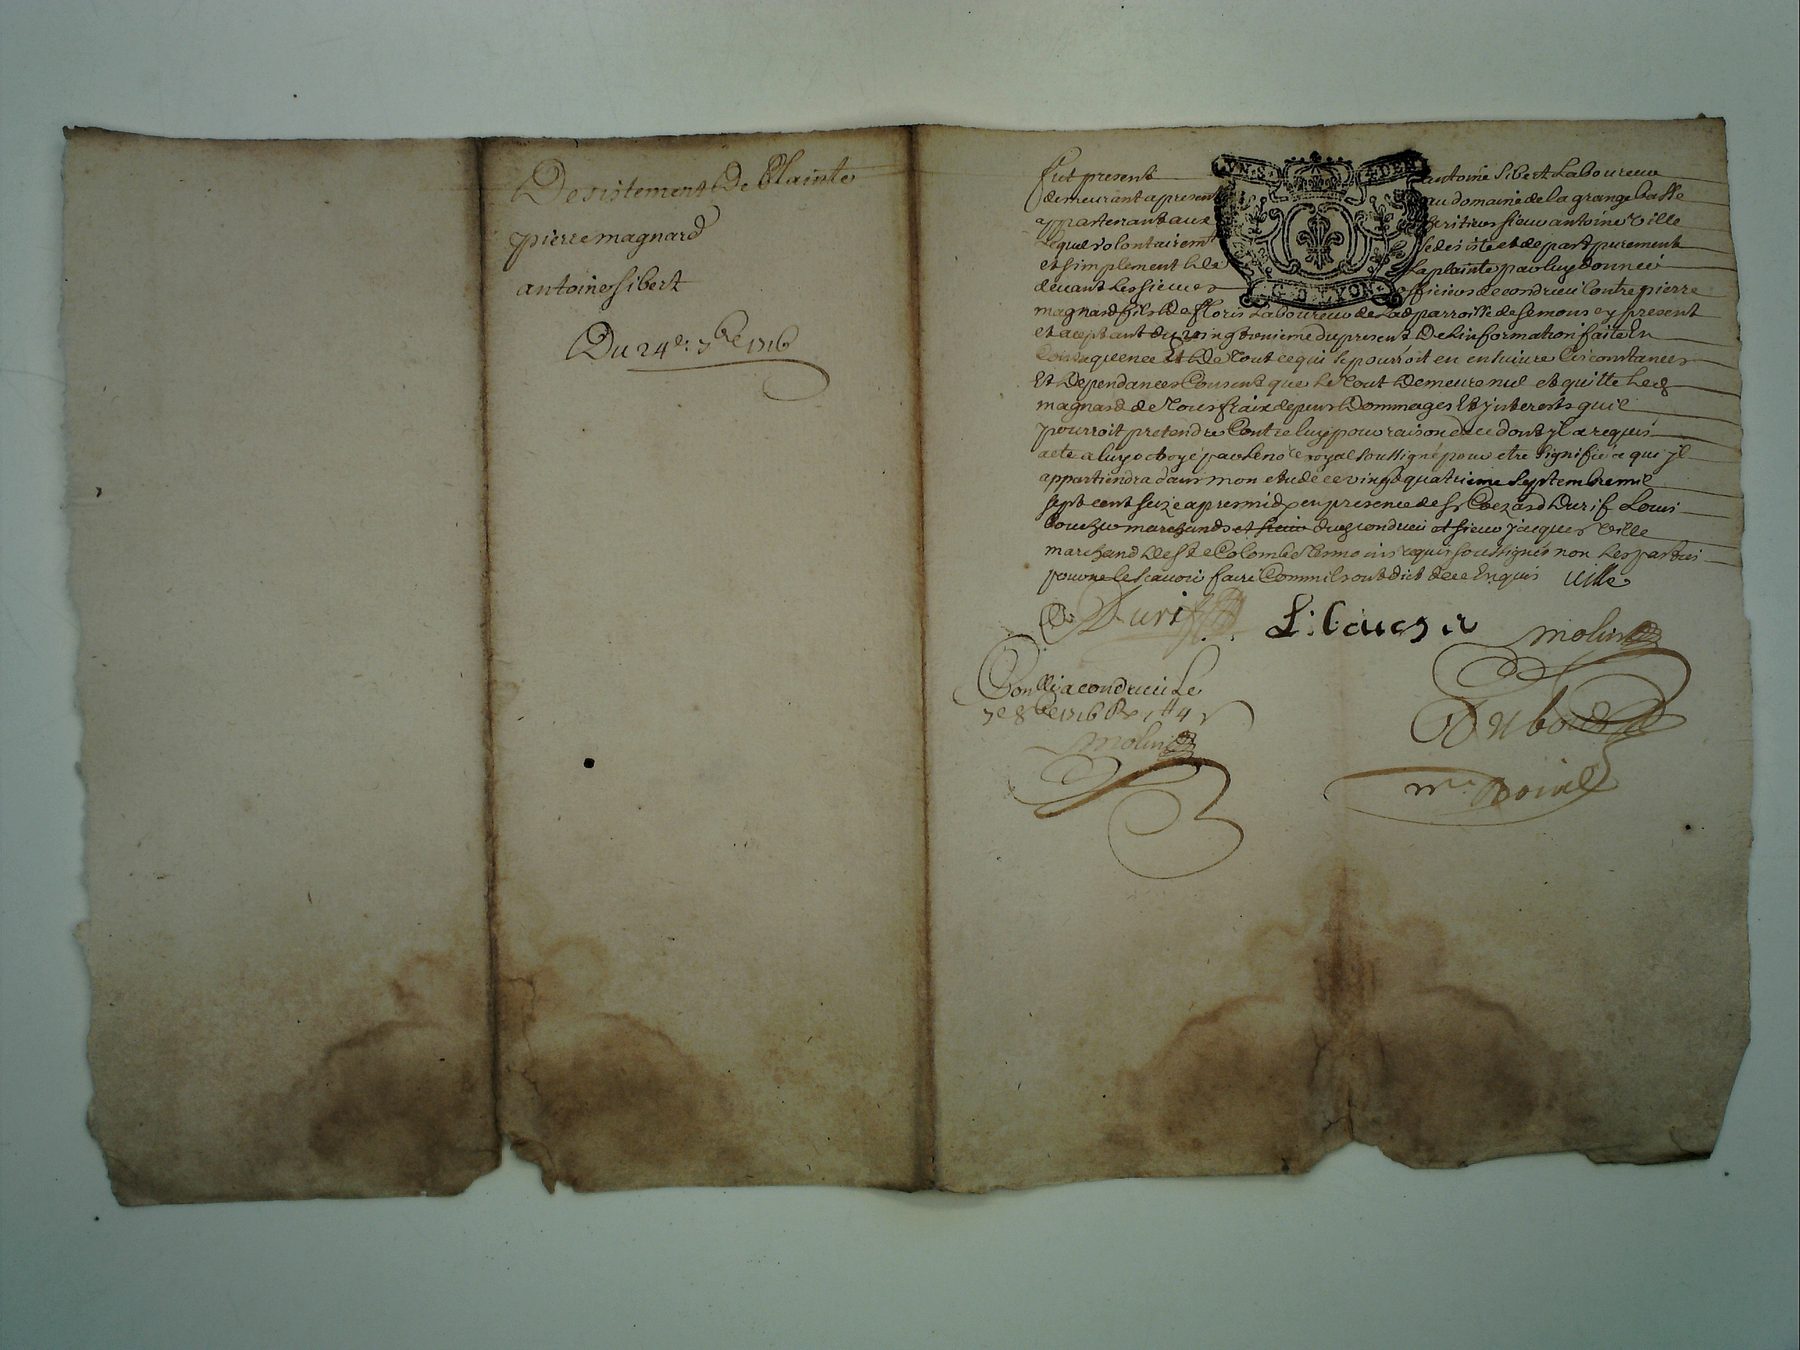 Desistement De Plainte
pierre magnard
antoine sibert
Du 24e: 7bre 1716
VN.S. 4 DEN
G.D. LYON
fut present antoine sibert Laboureur
demeurant a present au domaine de la grange basse
appartenant aux heritiers sieur antoine Ville
Lequel volontairemt se desiste et depart purement
et simplement de la plainte par luy donneé
devant Les sieurs officiers de condrieu Contre pierre
magnard fils de floris Laboureur de Lad parroisse de semons ey present
et aceptant du vingtroisieme du present De Linformation faite En
Consequence Et De Tout ce qui se pourroit en ensuivre Circonstances
Et Dependances Consent que Le Tout Demeure nul et quitte Led
magnard de Tous fraix depens Dommages Et ynterests quil
pourroit pretendre Contre luy pour raison de ce dont yl a requis
acte a luy octroyé par Le nore royal soussigné pour etre signifié a qui yl
appartiendra dans mon etude ce vingt quatrieme septembre mil
sept cent seize apres midy en presence de sr Cezard Durif Louis
bouchu marchands et sieur dud condrieu et sieur jacques Ville
marchand de ste Colombe Temoins requis soussignés non Les parties
pour ne le scavoir faire Comm ils ont dict de ce Enquis Ville
C Durif L. bouchu molin
Conllé a condrieu Le
7e 8bre 1716 molin
Dubois
nre Roial